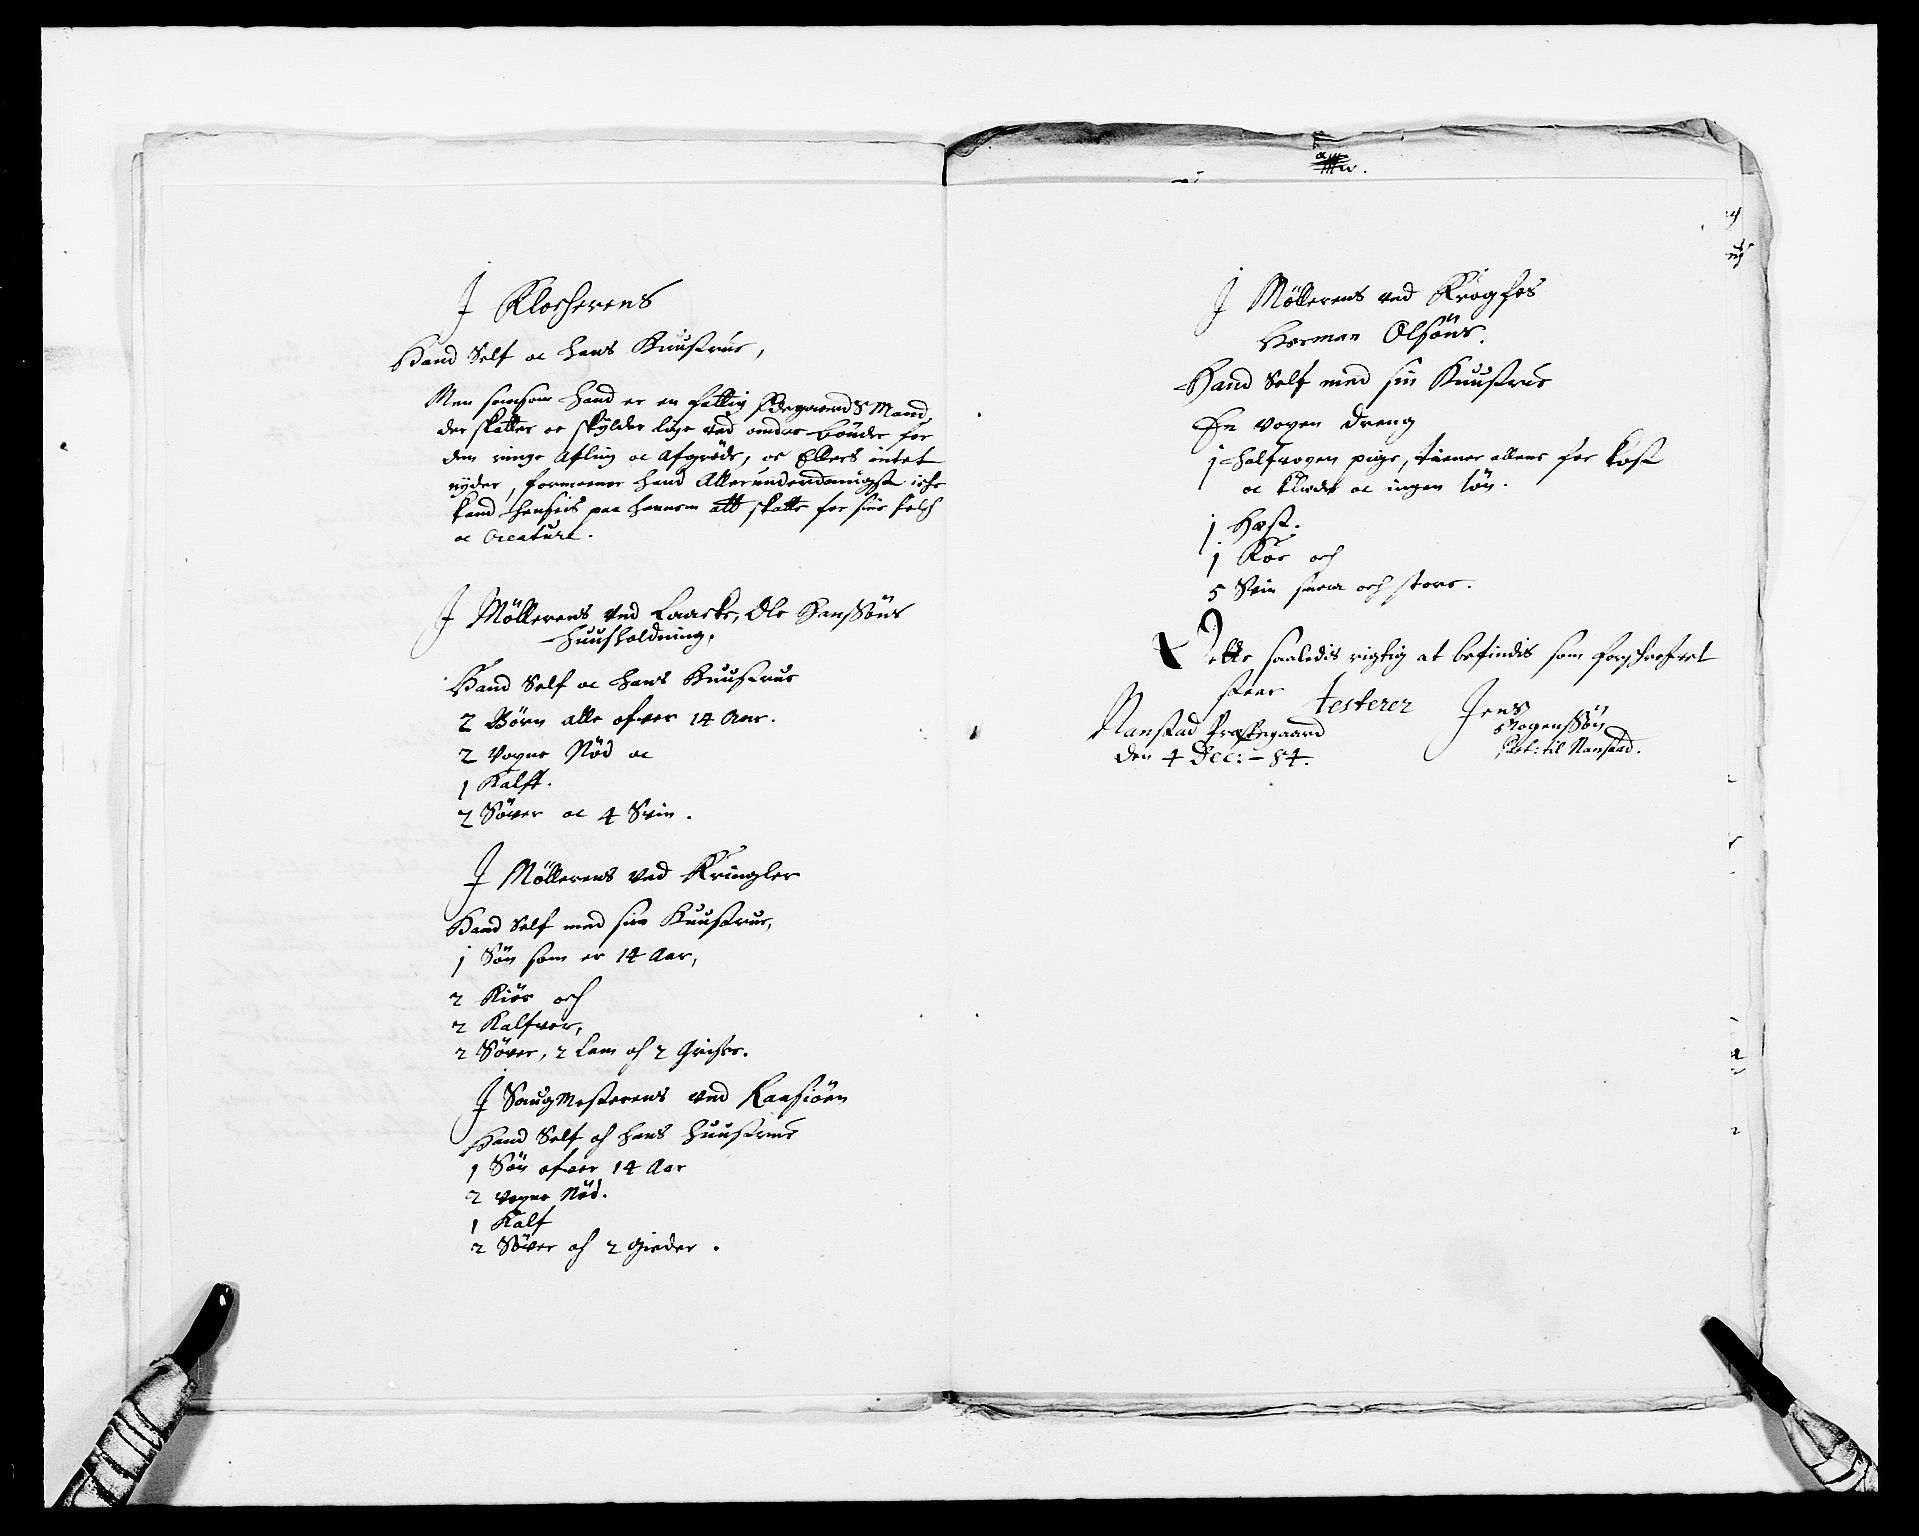 I Klocherens
Hand Self oc hans Huustrue,
Men somsom hand er en fattig Ødegaards Mand,
der skatter oc skylder lige ved andre bønder for
den ringe Afling oc Afgrøde, oc Ellers intet
nyder, formeener hand Allerunderdanigst iche
kand hensees paa hannem att skatte for sine folch
oc Creature.
I Möllerens ved Laaske, Ole Hanssöns
Huusholdning,
Hand Self oc hans Huustrue
2 Börn alle ofver 14 Aar.
2 Voxne Nöd oc
1 Kalff.
2 Söver oc 4 Svin.
I Möllerens ved Kringler
Hand Self med sin Huustrue,
1 Sön som er 14 Aar,
2 Kiör och
2 Kalfver,
2 Söver, 2 Lam och 2 Griser.
I Saugmesterens ved Raasiöen
Hand Self och hans Huustrue
1 Sön ofver 14 Aar
2 Voxne Nöd.
1 Kalf
2 Söver och 2 Gieder.
I Möllerens ved Krogfos
Herman Olsöns.
Hand Self med sin Huustrue
En voxen dreng
1 halfvoxen pige, tiener allene for kost
oc klæder oc ingen lön.
1 Hest.
1 Koe och
5 Svin smaa och store.
Dette saaledis rigtig at befindis som forschrefvet
staar testerer Jens
Nanstad Præstegaard Mogenssön
den 4 Dec: - 84. Past: til Nanstad.